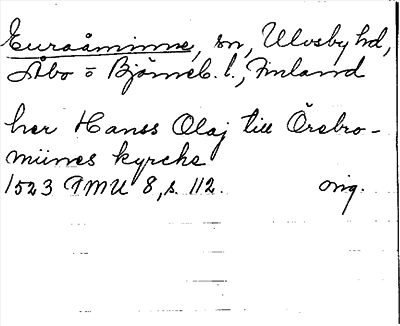 Euraåminne, sn, Ulvsby hd,
Åbo o Björneb. l., Finland
her Hanss Olaj till Örebro-
münnes kyrche
1523 FMU 8, s. 112. orig.